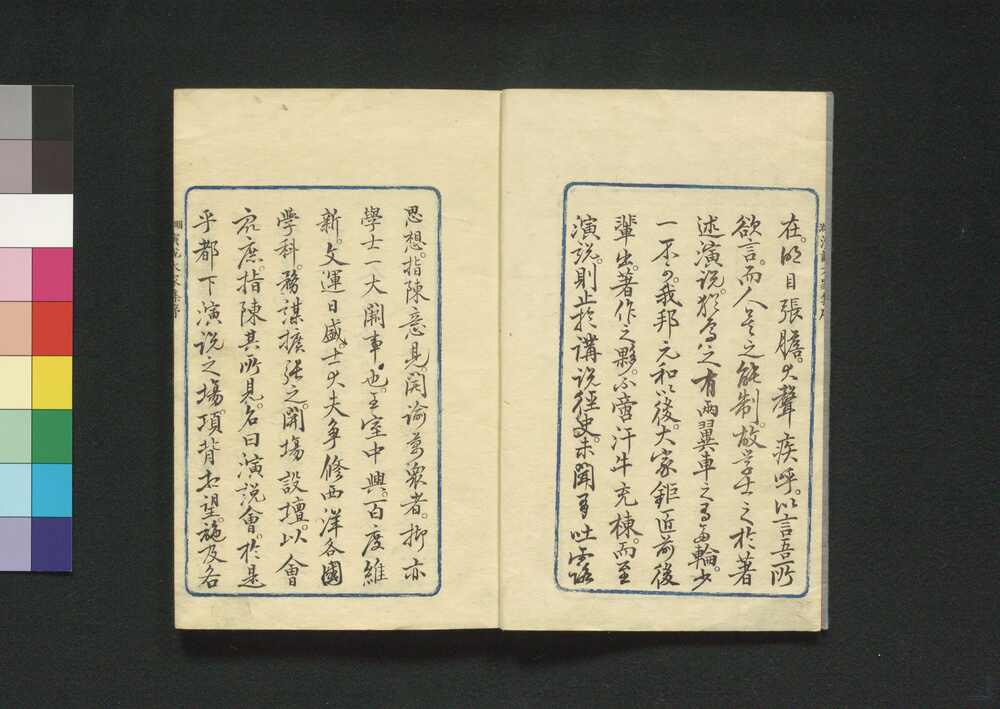 在。明目張膽。大聲疾呼。以言吾所
欲言。而人莫之能制。故學士之於著
述演説。猶鳥之有兩翼車之有兩輪。少
一不可。我邦元和以後。大家鉅匠前後
輩出。著作之夥。不啻汗牛充棟。而至
演説。則止於講説經史。未聞有吐露
思想。指陳意見。開諭萬衆者。抑亦
學士一大闕事也。王室中興。百度維
新。文運日盛。士大夫爭修西洋各國
學科。務謀擴張之。開場設壇。以會
衆庶。指陳其所見。名曰演説會。於是
乎都下演説之場。項背相望。施及各